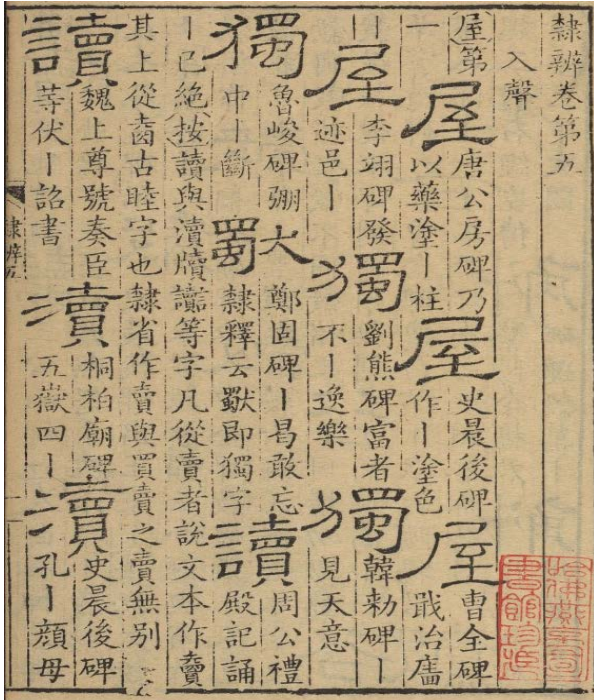 隸辨卷第五
入聲
屋第一 屋 唐公房碑乃以藥塗丨柱 屋 史晨後碑作丨塗色 屋 曹全碑戢治廧
丨 屋 李翊碑發迹邑丨 獨 劉熊碑富者不丨逸樂 獨 韓勑碑丨見天意
獨 魯峻碑弸中丨斷 獨 鄭固碑丨曷敢忘隸釋云獸即獨字 讀 周公禮殿記誦
丨已絕按讀與瀆牘讟等字凡從賣者說文本作賣
其上從㚊古睦字也隸省作賣與買賣之賣無别
讀 魏上尊號奏臣等伏丨詔書 瀆 桐柏廟碑五嶽四丨 瀆 史晨後碑孔丨顏母
隸辨五
哈佛燕京圖書館珍藏